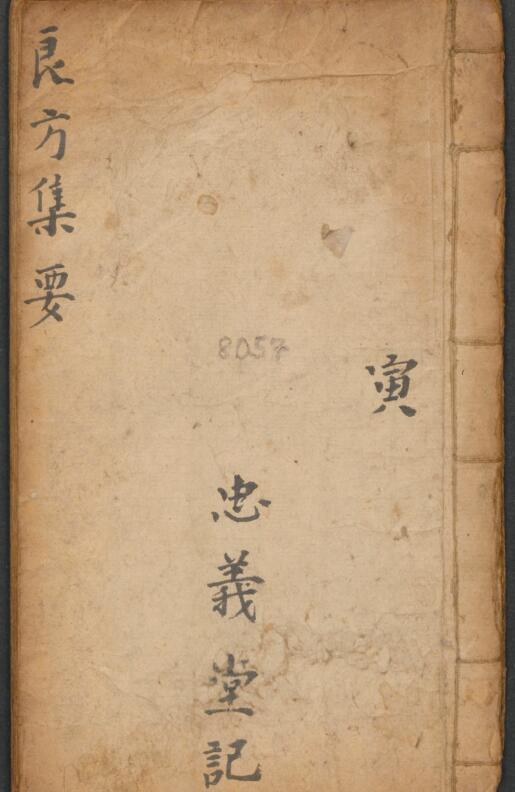 寅
忠義堂記
良方集要
8057